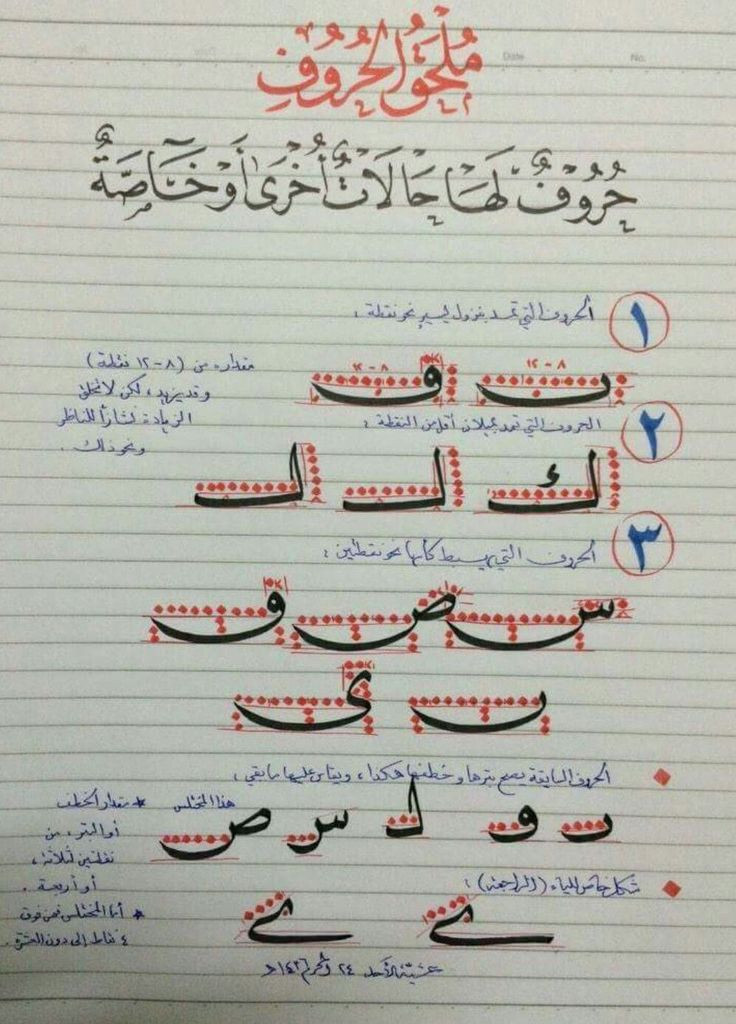 مُلْحَقُ الحُرُوفِ
Date No.
حُرُوفٌ لَهَا حَالَاتٌ أُخْرَى أَوْ خَاصَّةٌ
١ الحروف التي تمد بنزول يسير نحو نقطة :
مقداره من (٨ - ١٢ نقطة)
وقد يزيد، لكن لا تجعل
الزيادة نشازاً للناظر
ونحو ذلك .
٨ - ١٢ ٨ - ١٢
ب ف
٢ الحروف التي تمد بميلان أقل من النقطة :
ك ل ل
٣ الحروف التي يهبط كأسها نحو نقطتين :
س ص ف
ب ى
الحروف السابقة يصح بترها وخطفها هكذا، ويقاس عليها ما بقي :
هذا المختلس
ب ف ل س ص
* مقدار الخطف
أو البتر، من
نقطتين لثلاثة،
أو أربعة .
* أما المختلس فمن فوق
٤ نقاط إلى دون العشرة .
شكل خاص للياء (الراجعة) :
ے ے
عشية الأحد ٢٤ محرم